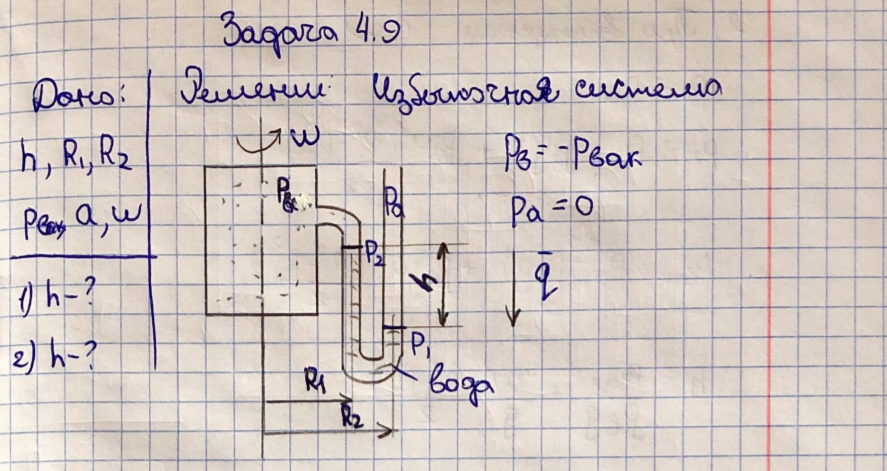 Задача 4.9
Дано:
h, R₁, R₂
Pвак, a, ω
1) h-?
2) h-?
Решение: Избыточная система
ω
Pв
Pа
P₂
h
P₁
R₁
R₂
вода
Pв = -Pвак
Pа = 0
q̄